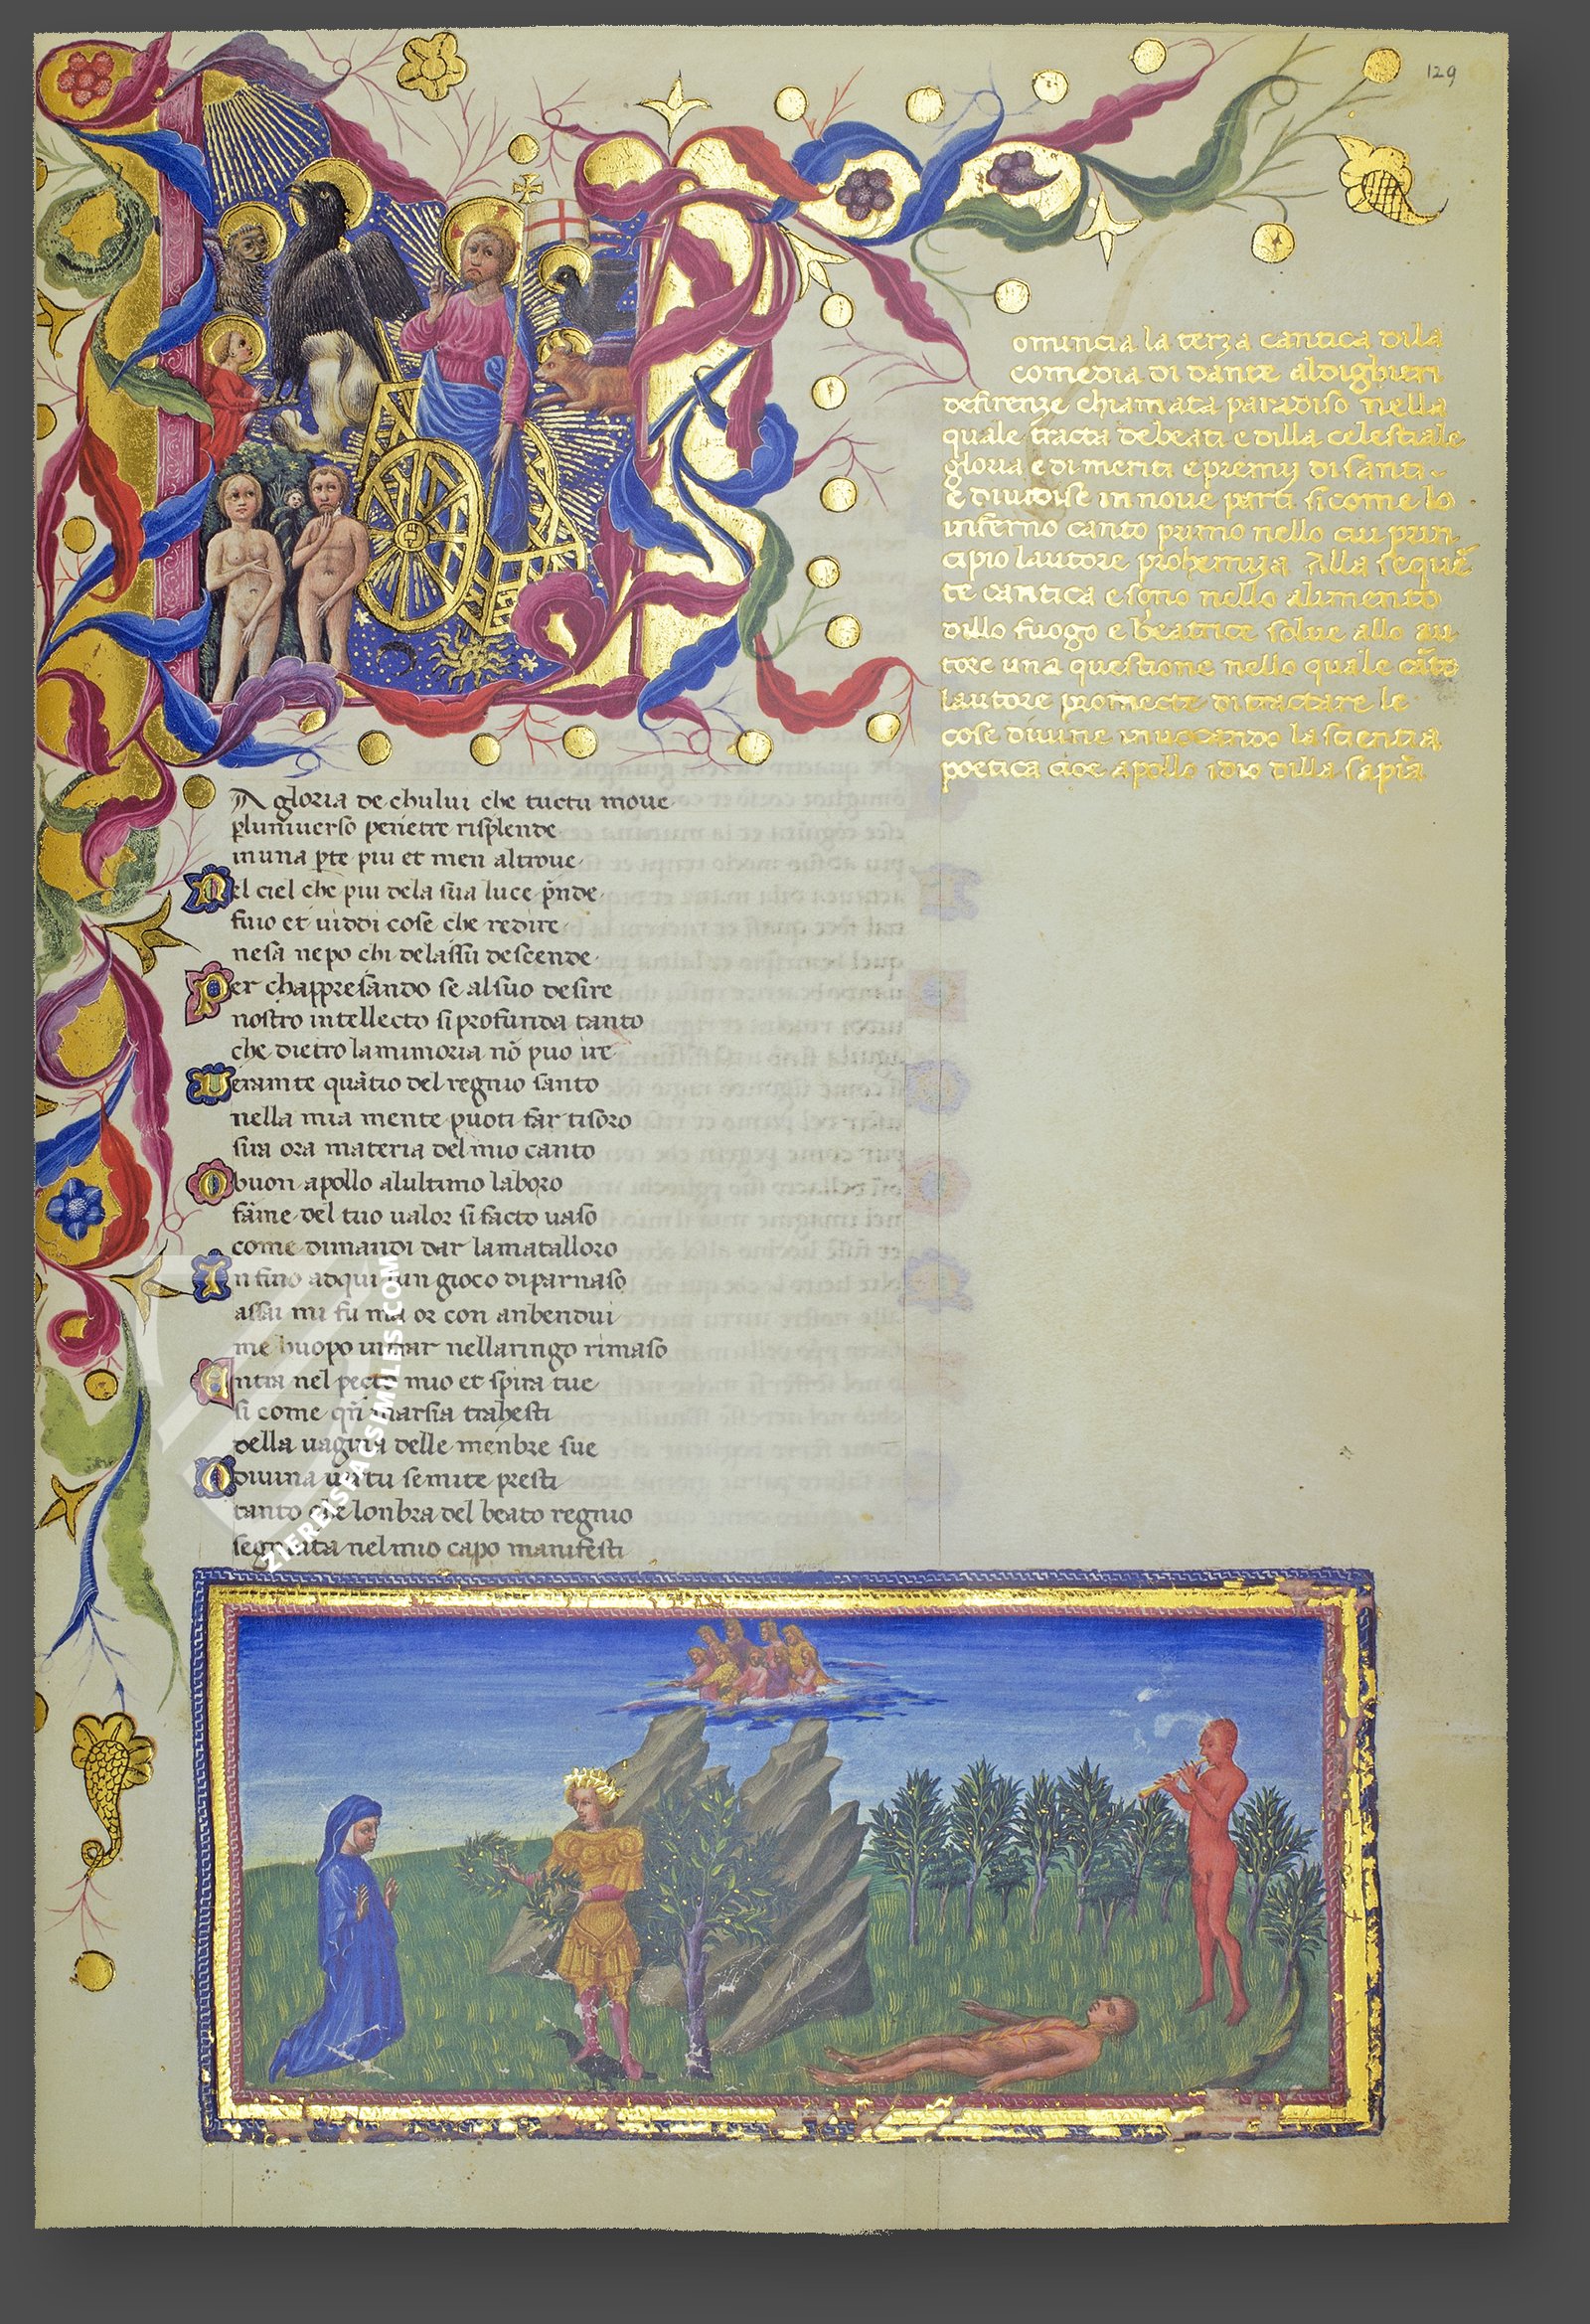 129
omincia la terza cantica dila
comedia di dante aldighieri
defirenze chiamata paradiso nella
quale tracta debeati e dilla celestiale
gloria e di meriti e premij di santi
E diuidise in noue parti sicome lo
inferno canto primo nello cui prin
cipio lautore prohemiza Alla sequē
te cantica e sono nello alimento
dillo fuogo e beatrice solue allo au
tore una questione nello quale cāto
lautore promecte di tractare le
cose diuine inuocando la scientia
poetica cioe apollo idio dilla sapiā
A gloria de chului che tuctu moue
pluniuerso penetre risplende
in una pte piu et men altroue
Nel ciel che piu dela sua luce p̄nde
fuio et uiddi cose che redire
nesa nepo chi delassu descende
Per chappresando se alsuo desire
nostro intellecto si profunda tanto
che dietro lamimoria nō puo ire
Veramte quātio del regnio santo
nella mia mente puoti far tisoro
sira ora materia del mio canto
O buon apollo alultimo laboro
fāme del tuo ualor si facto uaso
come dimandi dar lamatalloro
In fino adqui lun gioco diparnaso
assai mi fu ma or con anbendui
me huopo intrar nellaringo rimaso
Entra nel pecto mio et spira tue
si come qn̄ marsia trahesti
della uagina delle menbre sue
O diuina uirtu se mi te presti
tanto che lonbra del beato regnio
segniata nel mio capo manifesti
ZIEREISFACSIMILES.COM